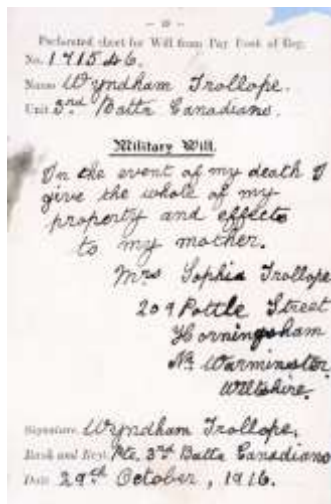 Perforated sheet for Will from Pay Book of Reg.
No. 171546.
Name Wyndham Trollope.
Unit 3rd Battn Canadians.
Military Will.
In the event of my death I
give the whole of my
property and effects
to my mother.
Mrs Sophia Trollope
209 Pottle Street
Horningsham
Nr. Warminster.
Wiltshire.
Signature Wyndham Trollope.
Rank and Regt. Pte. 3rd Battn Canadians
Date 29th October, 1916.